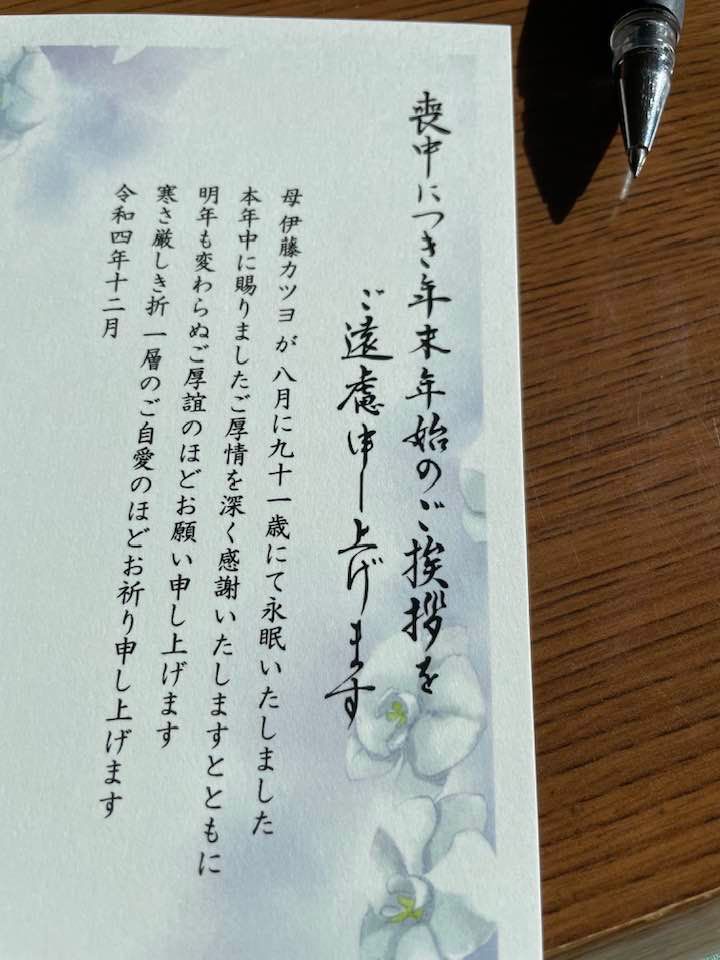 喪中につき年末年始のご挨拶を
ご遠慮申し上げます
母 伊藤カツヨ が 八月に九十一歳にて永眠いたしました
本年中に賜りましたご厚情を深く感謝いたしますとともに
明年も変わらぬご厚誼のほどお願い申し上げます
寒さ厳しき折 一層のご自愛のほどお祈り申し上げます
令和四年十二月